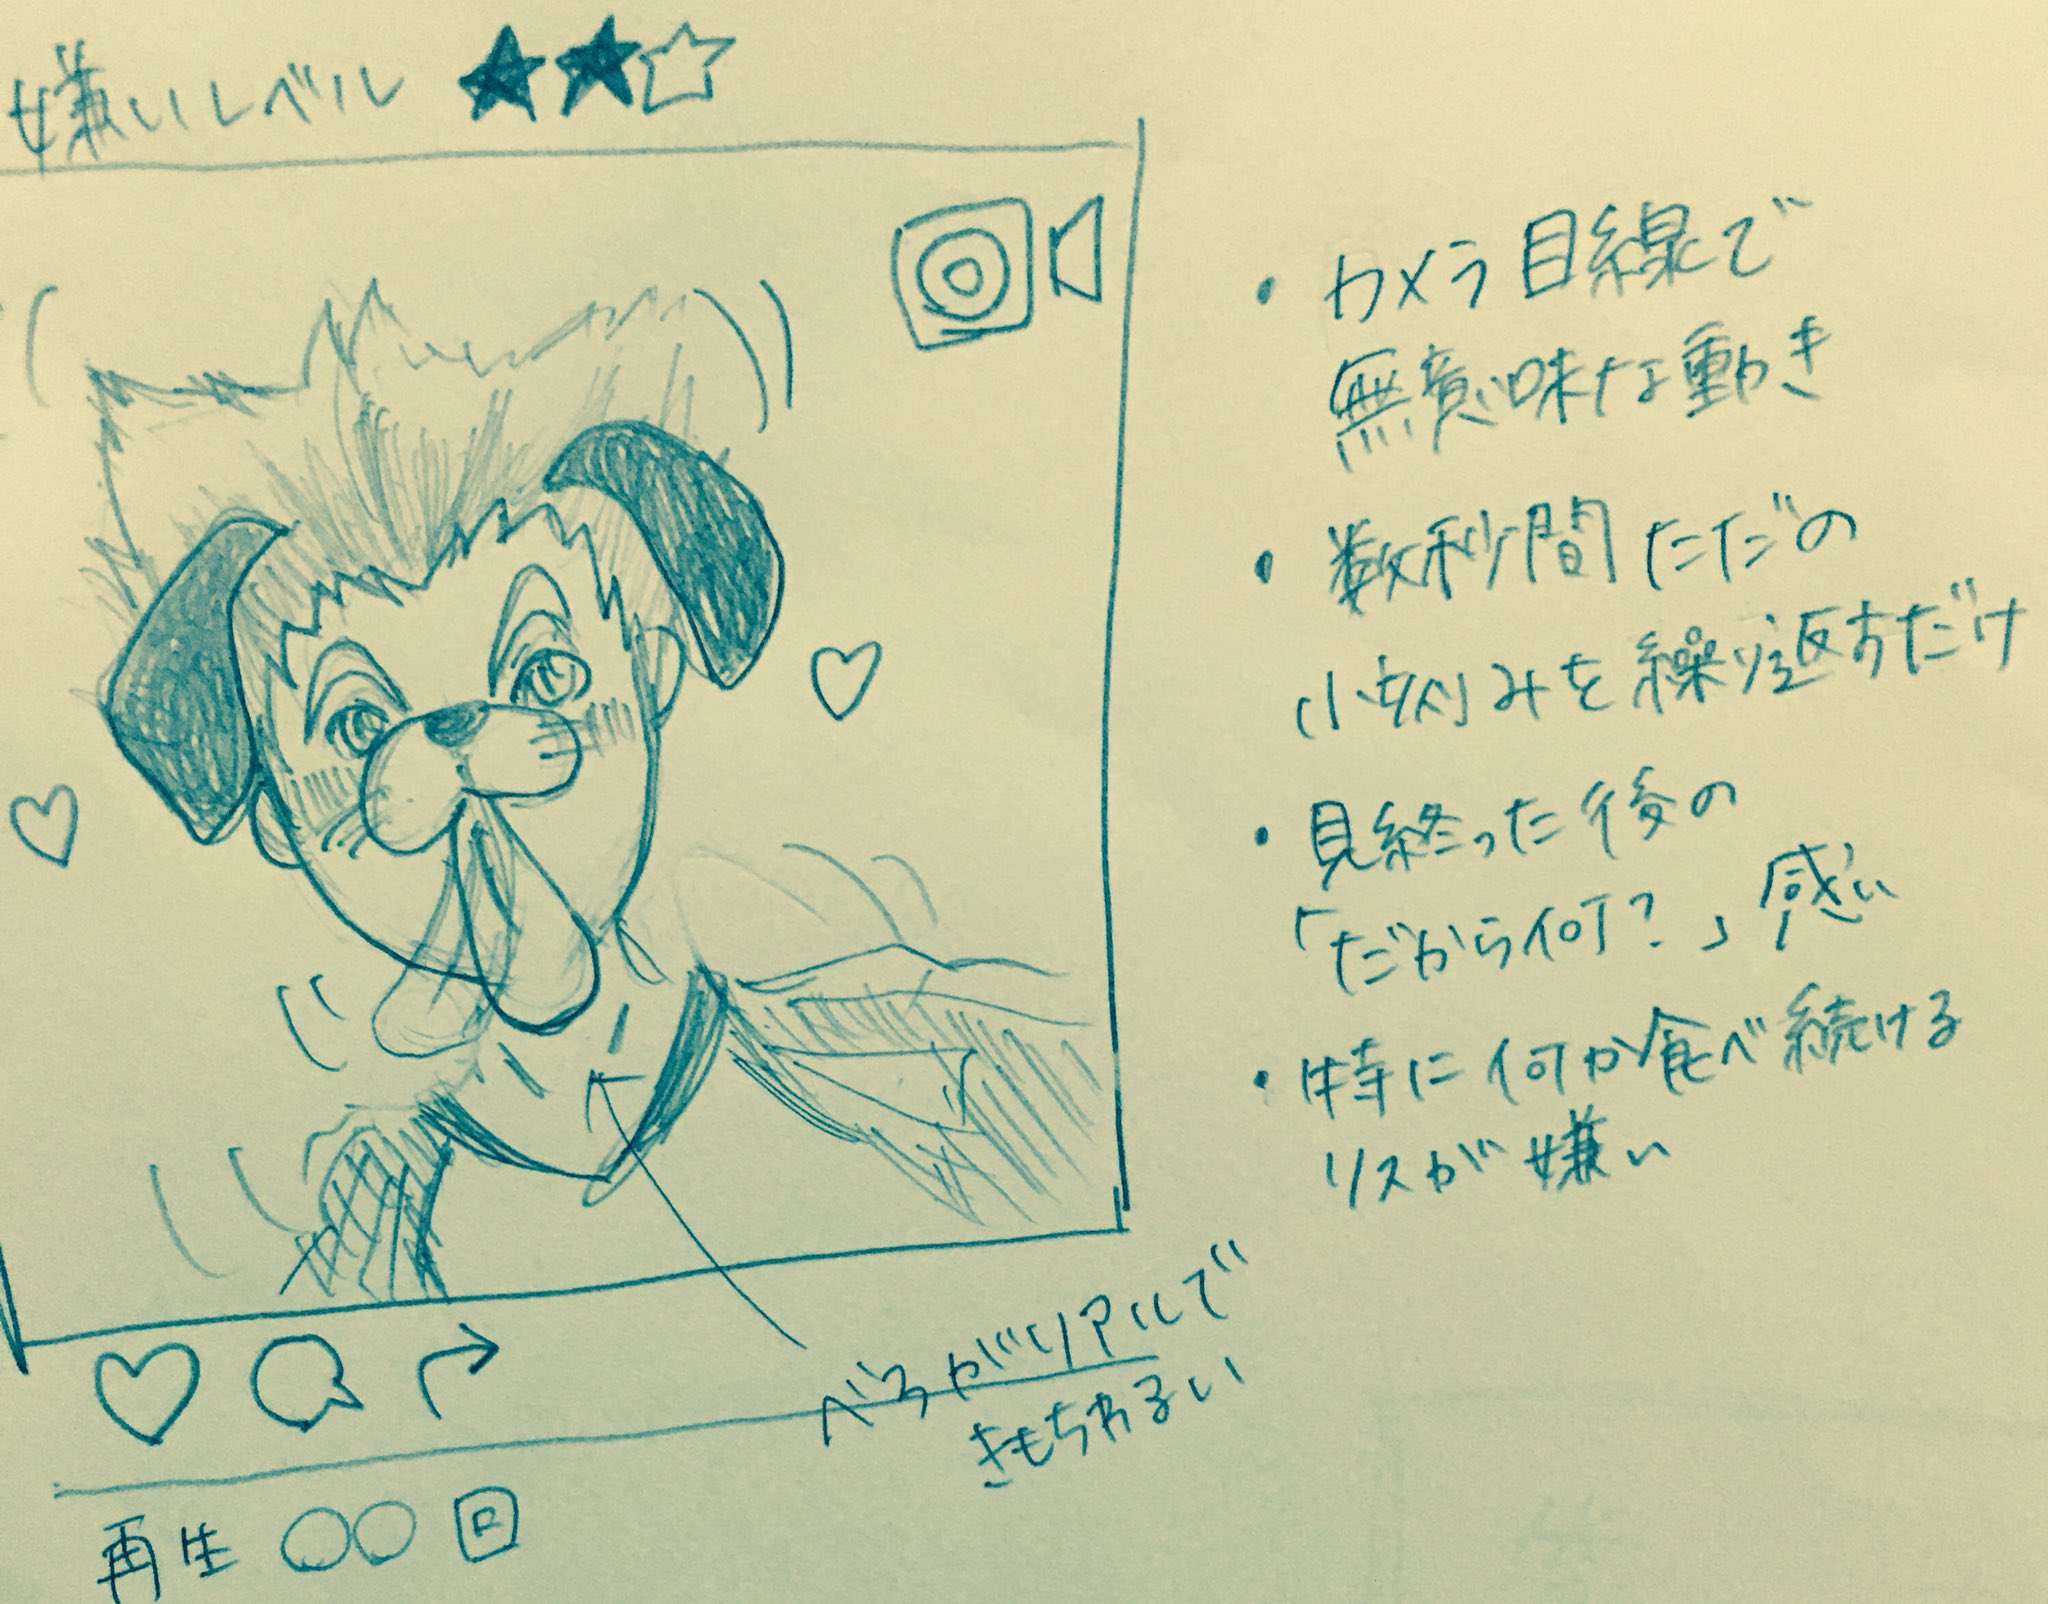 嫌いレベル ★★☆
・カメラ目線で
無意味な動き
・数秒間ただの
小刻みを繰り返すだけ
・見終った後の
「だから何?」感い
・特に何か食べ続ける
リスが嫌い
ベラがリアルで
きもちわるい
再生 ○○ 回